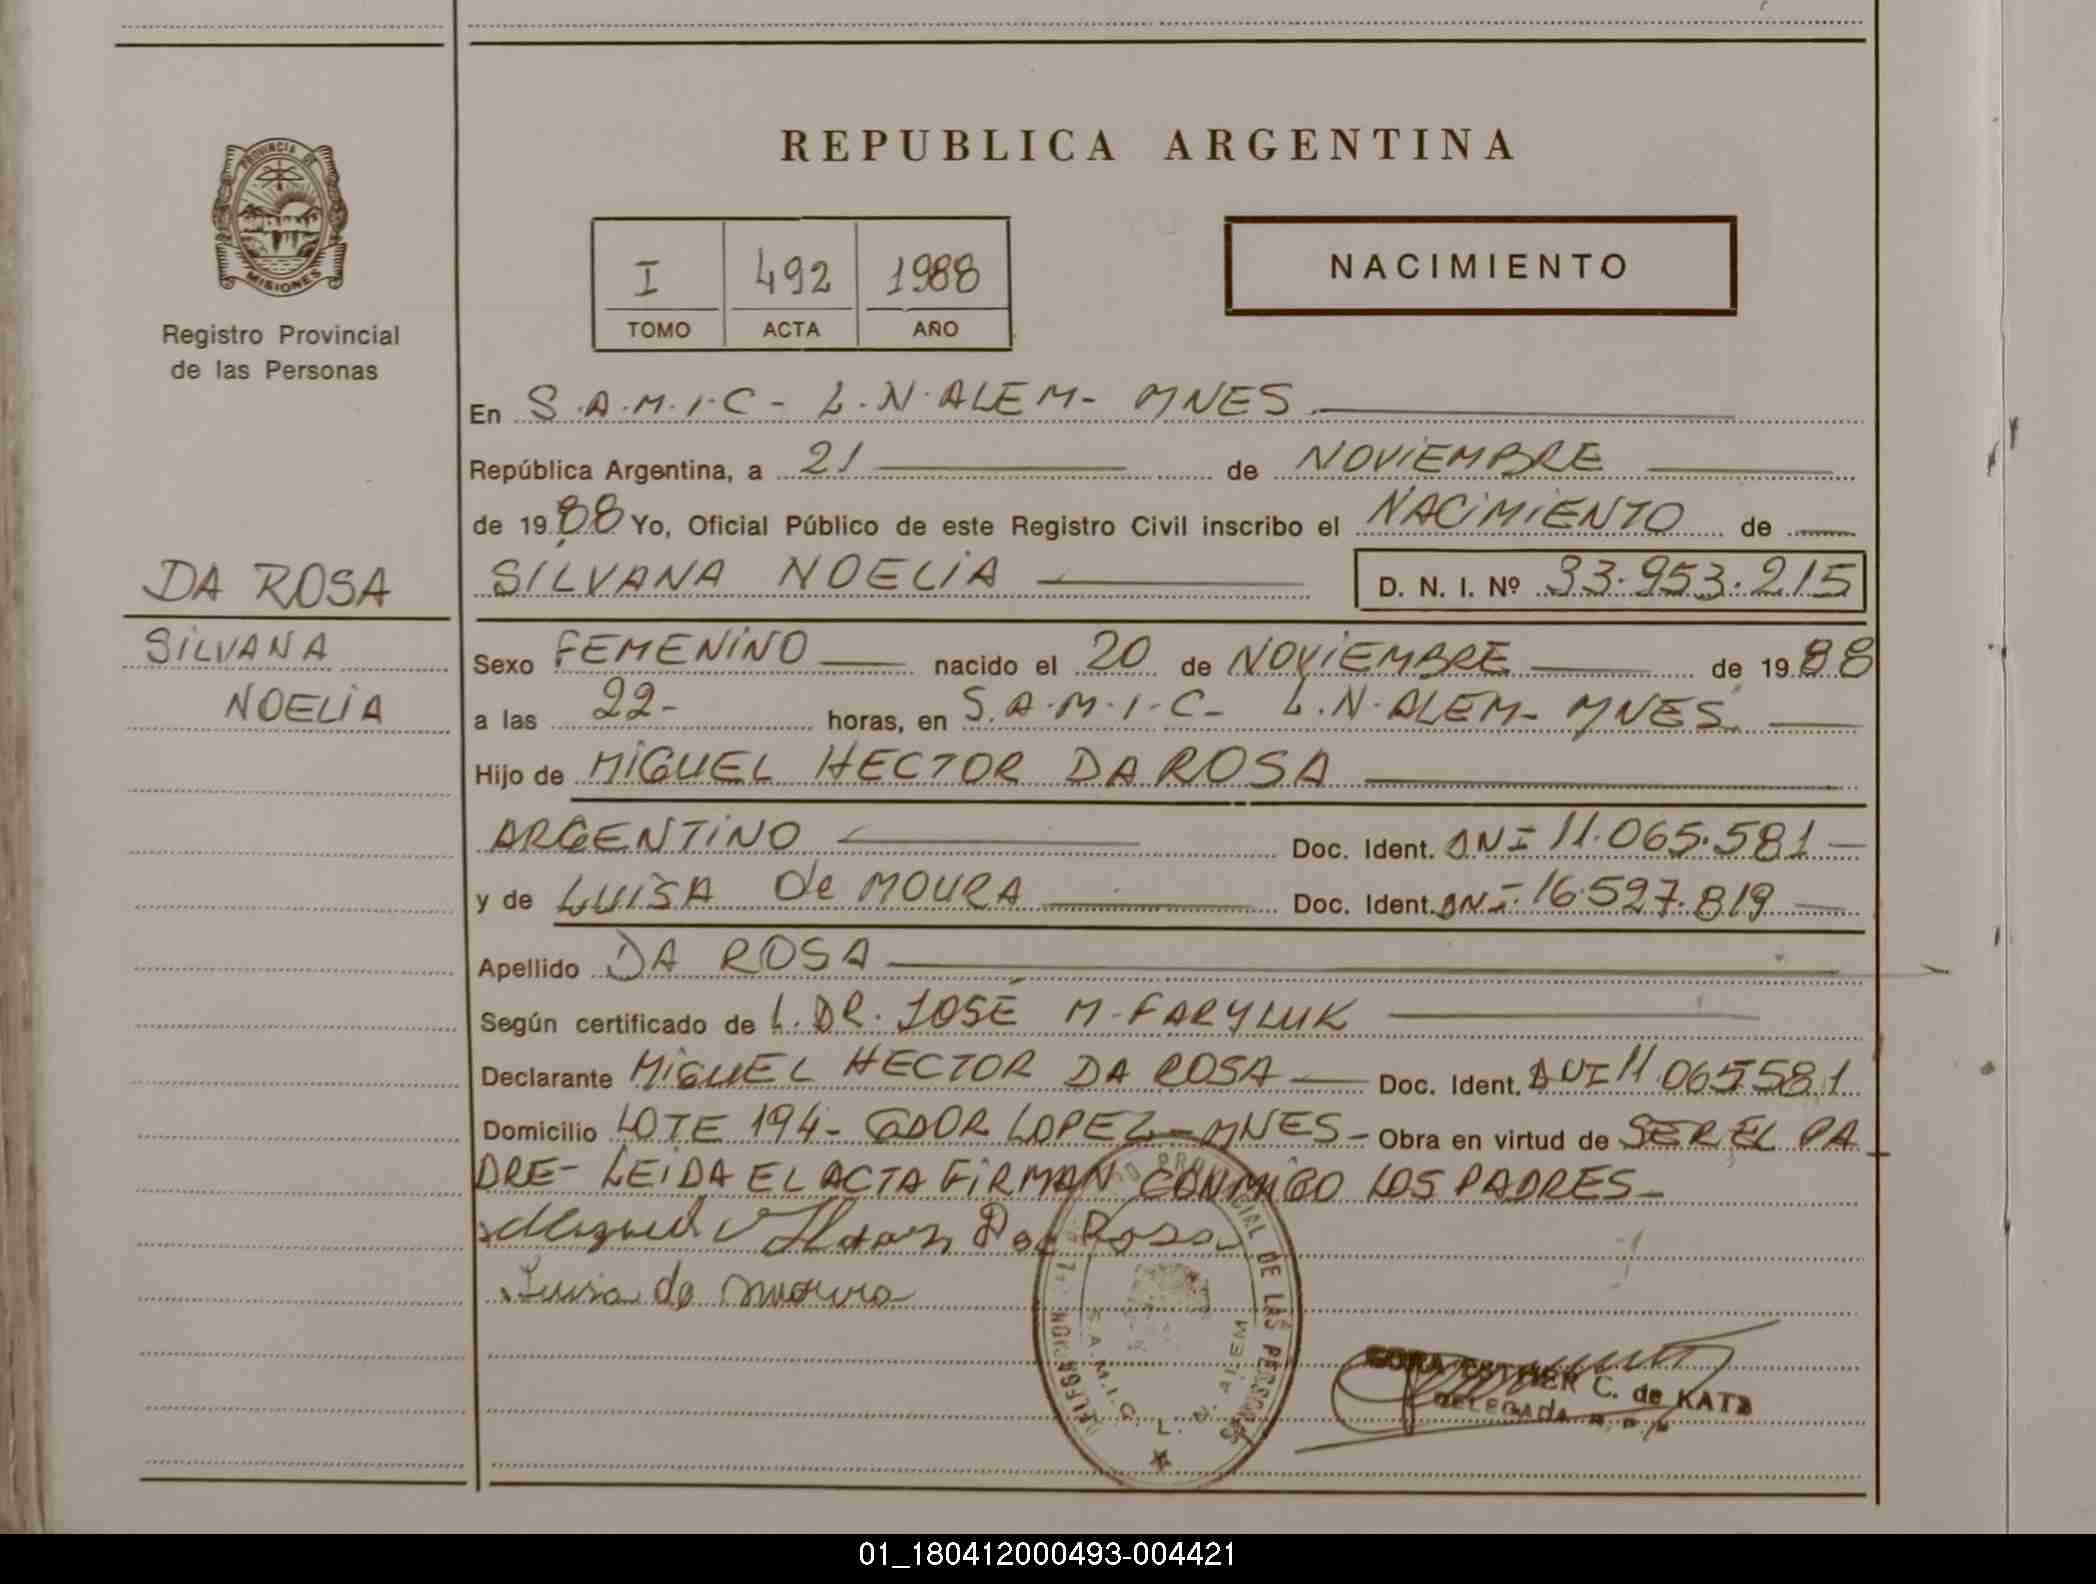 PROVINCIA DE
MISIONES
Registro Provincial
de las Personas
DA ROSA
SILVANA
NOELIA
REPUBLICA ARGENTINA
I 492 1988
TOMO ACTA AÑO
NACIMIENTO
En S.A.M.I.C - L.N.ALEM - MNES.
República Argentina, a 21 de NOVIEMBRE
de 1988 Yo, Oficial Público de este Registro Civil inscribo el NACIMIENTO de
SILVANA NOELIA D. N. I. Nº 33.953.215
Sexo FEMENINO nacido el 20 de NOVIEMBRE de 1988
a las 22- horas, en S.A.M.I.C- L.N.ALEM- MNES.
Hijo de MIGUEL HECTOR DA ROSA
ARGENTINO Doc. Ident. DNI 11.065.581-
y de LUISA De MOURA Doc. Ident. DNI-16.527.819
Apellido DA ROSA
Según certificado de L. DR. JOSÉ M. FARYLUK
Declarante MIGUEL HECTOR DA ROSA Doc. Ident. DNI 11.065581
Domicilio LOTE 194- GDOR LOPEZ - MNES- Obra en virtud de SER EL PA
DRE- LEIDA EL ACTA FIRMAN CONMIGO LOS PADRES-
Miguel Da Rosa
Luisa de Moura
DE LAS PERSONAS
DELEGACION
S.A.M.I.C. L. N. ALEM
ESTHER C. de KATZ
DELEGADA
01_180412000493-004421